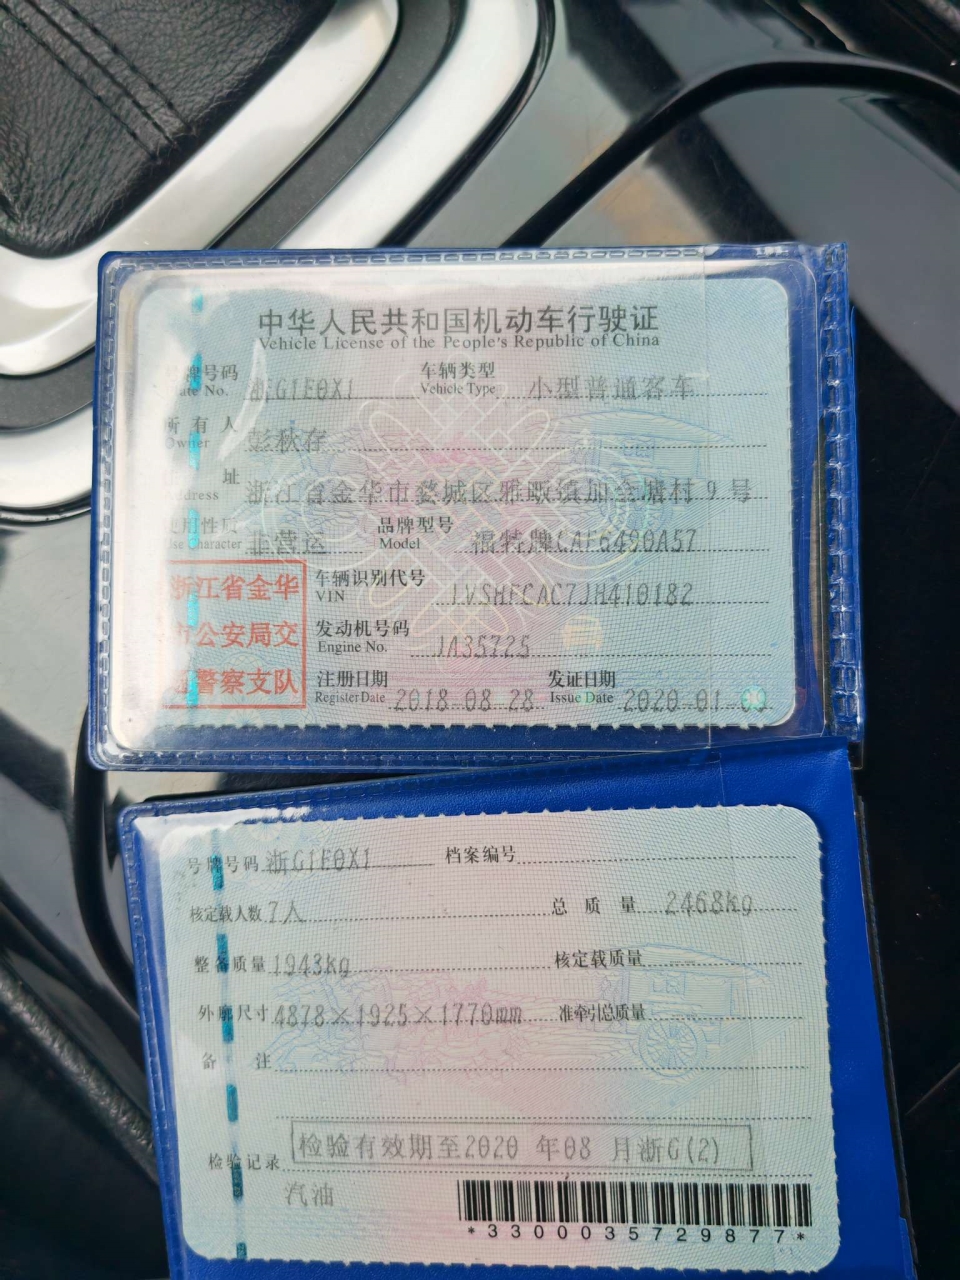 中华人民共和国机动车行驶证
Vehicle License of the People's Republic of China
号牌号码 浙G1E0X1 车辆类型 小型普通客车
Plate No. Vehicle Type
所有人 彭秋存
Owner
住址 浙江省金华市婺城区雅畈镇加金塘村9号
Address
使用性质 非营运 品牌型号 福特牌CAF6490A57
Use Character Model
浙江省金华
市公安局交
通警察支队
车辆识别代号 LVSHFCAC7JH410182
VIN
发动机号码 JA35725
Engine No.
注册日期 2018-08-28 发证日期 2020-01-09
Register Date Issue Date
号牌号码 浙G1E0X1 档案编号
核定载人数 7人 总质量 2468kg
整备质量 1943kg 核定载质量
外廓尺寸 4878×1925×1770mm 准牵引总质量
备注
检验记录 检验有效期至2020年08月浙G(2)
汽油
*3300035729877*